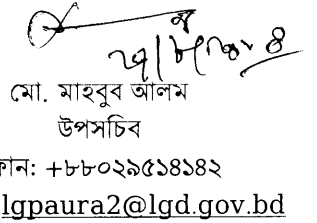 মো. মাহবুব আলম
উপসচিব
ফোন: +৮৮০২৯৫১৪১৪২
lgpaura2@lgd.gov.bd